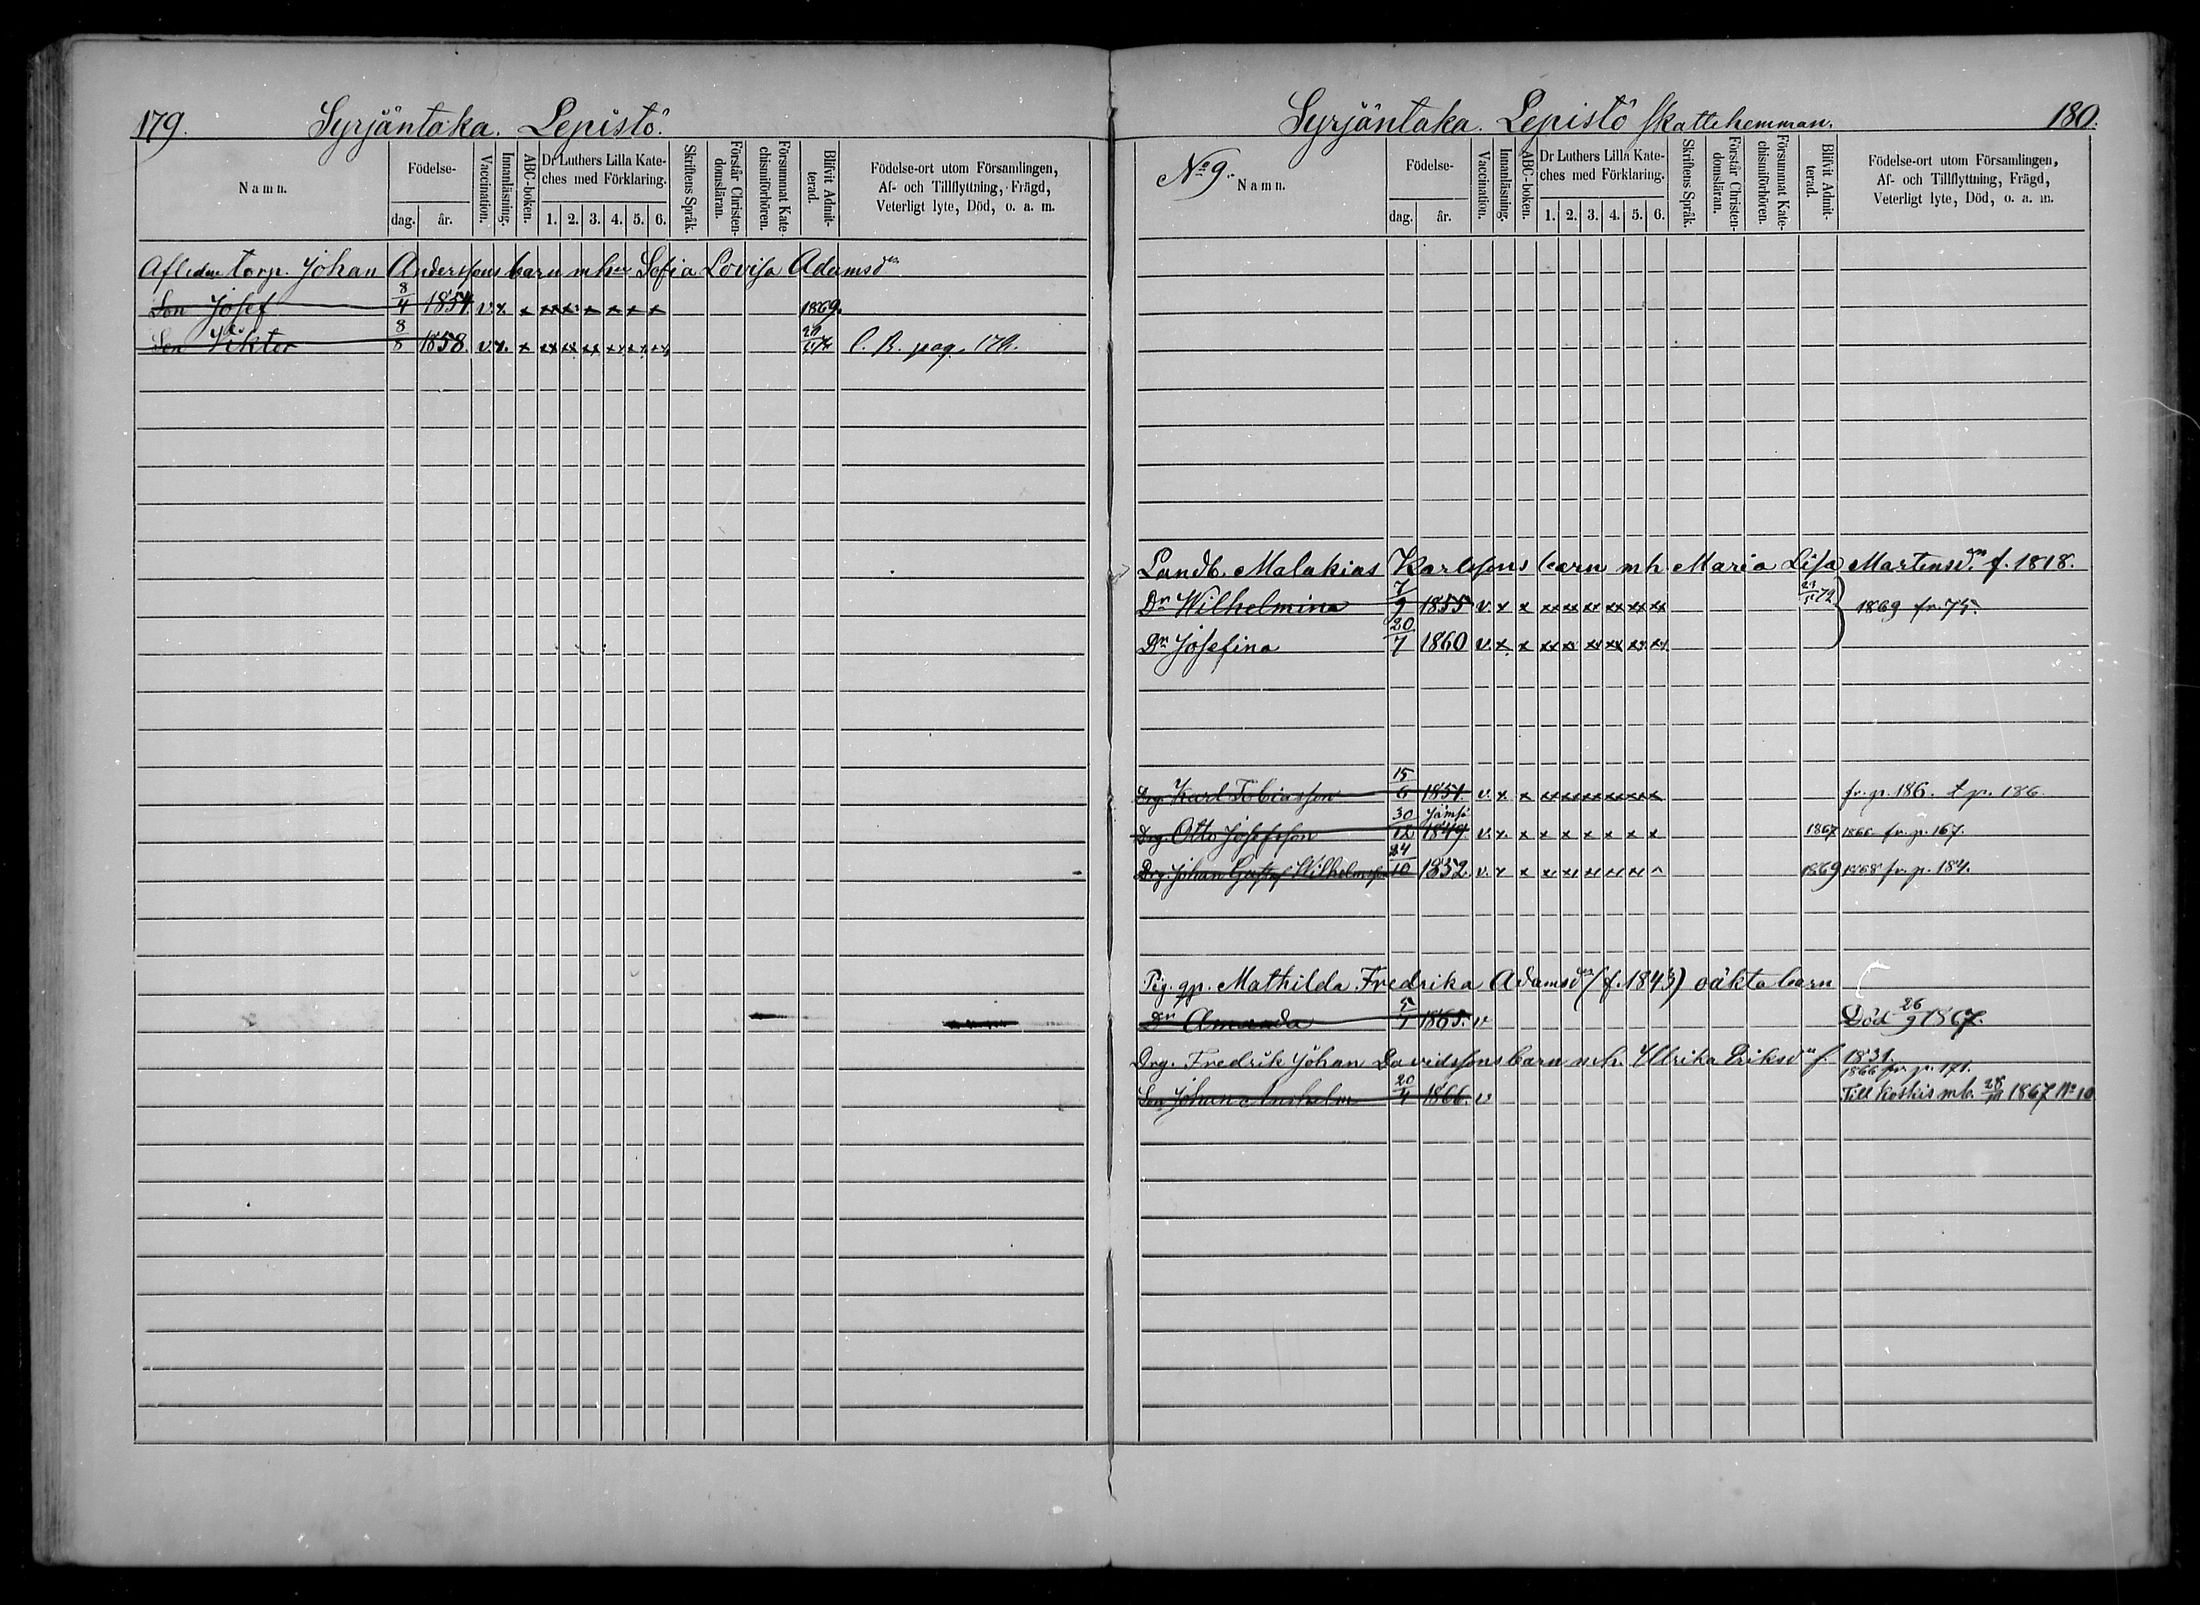 179. Syrjäntaka. Lepistö.
Namn.
Födelse-
dag. år.
Vaccination.
Innanläsning.
ABC-boken.
Dr Luthers Lilla Kate-
ches med Förklaring.
1. 2. 3. 4. 5. 6.
Skriftens Språk.
Förstår Christen-
domsläran.
Försummat Kate-
chismiförhören.
Blifvit Admit-
terad.
Födelse-ort utom Församlingen,
Af- och Tillflyttning, Frägd,
Veterligt lyte, Död, o. a. m.
Afledne torp. Johan Anderssons barn mh Sofia Lovisa Adamsdr
Son Josef 8/4 1854 v. x. x xx xx x x x x 1869.
Son Viktor 8/8 1858. v. x. x xx xx xx xx xx xx C. B. pag.
Syrjäntaka. Lepistö Skattehemman. 180.
No 9.
Namn.
Födelse-
dag. år.
Vaccination.
Innanläsning.
ABC-boken.
Dr Luthers Lilla Kate-
ches med Förklaring.
1. 2. 3. 4. 5. 6.
Skriftens Språk.
Förstår Christen-
domsläran.
Försummat Kate-
chismiförhören.
Blifvit Admit-
terad.
Födelse-ort utom Församlingen,
Af- och Tillflyttning, Frägd,
Veterligt lyte, Död, o. a. m.
Landb. Malakias Karlssons barn mh Maria Lisa Martensdr f. 1818.
Dr Wilhelmina 7/9 1855 v. x x xx xx xx xx xx xx 1869 fr. 75.
Dr Josefina 20/7 1860 v. x x xx xx xx xx xx xx
Drg. Karl Tobiasson 15/6 1851. v. x x xx xx xx xx xx xx fr. p. 186. t. p. 186.
Drg. Otto Josefsson 30/12 Jämsä 1849. v. x. x x x x x x x 1867 1866 fr. p. 167.
Drg. Johan Gustaf Wilhelmsson 24/10 1852 v. x x xx xx xx xx xx x 1869 1868 fr. p. 184.
Pig. gp. Mathilda Fredrika Adamsdr (f. 1843) oäkta barn
Dr Amanda 5/1 1865. v Död 26/9 1867.
Drg. Fredrik Johan Davidssons barn mh. Ulrika Eriksdr f. 1831.
1866 fr. p. 171.
Son Johan Anshelm 20/4 1866. v Till Koskis mb. 1867 No 10